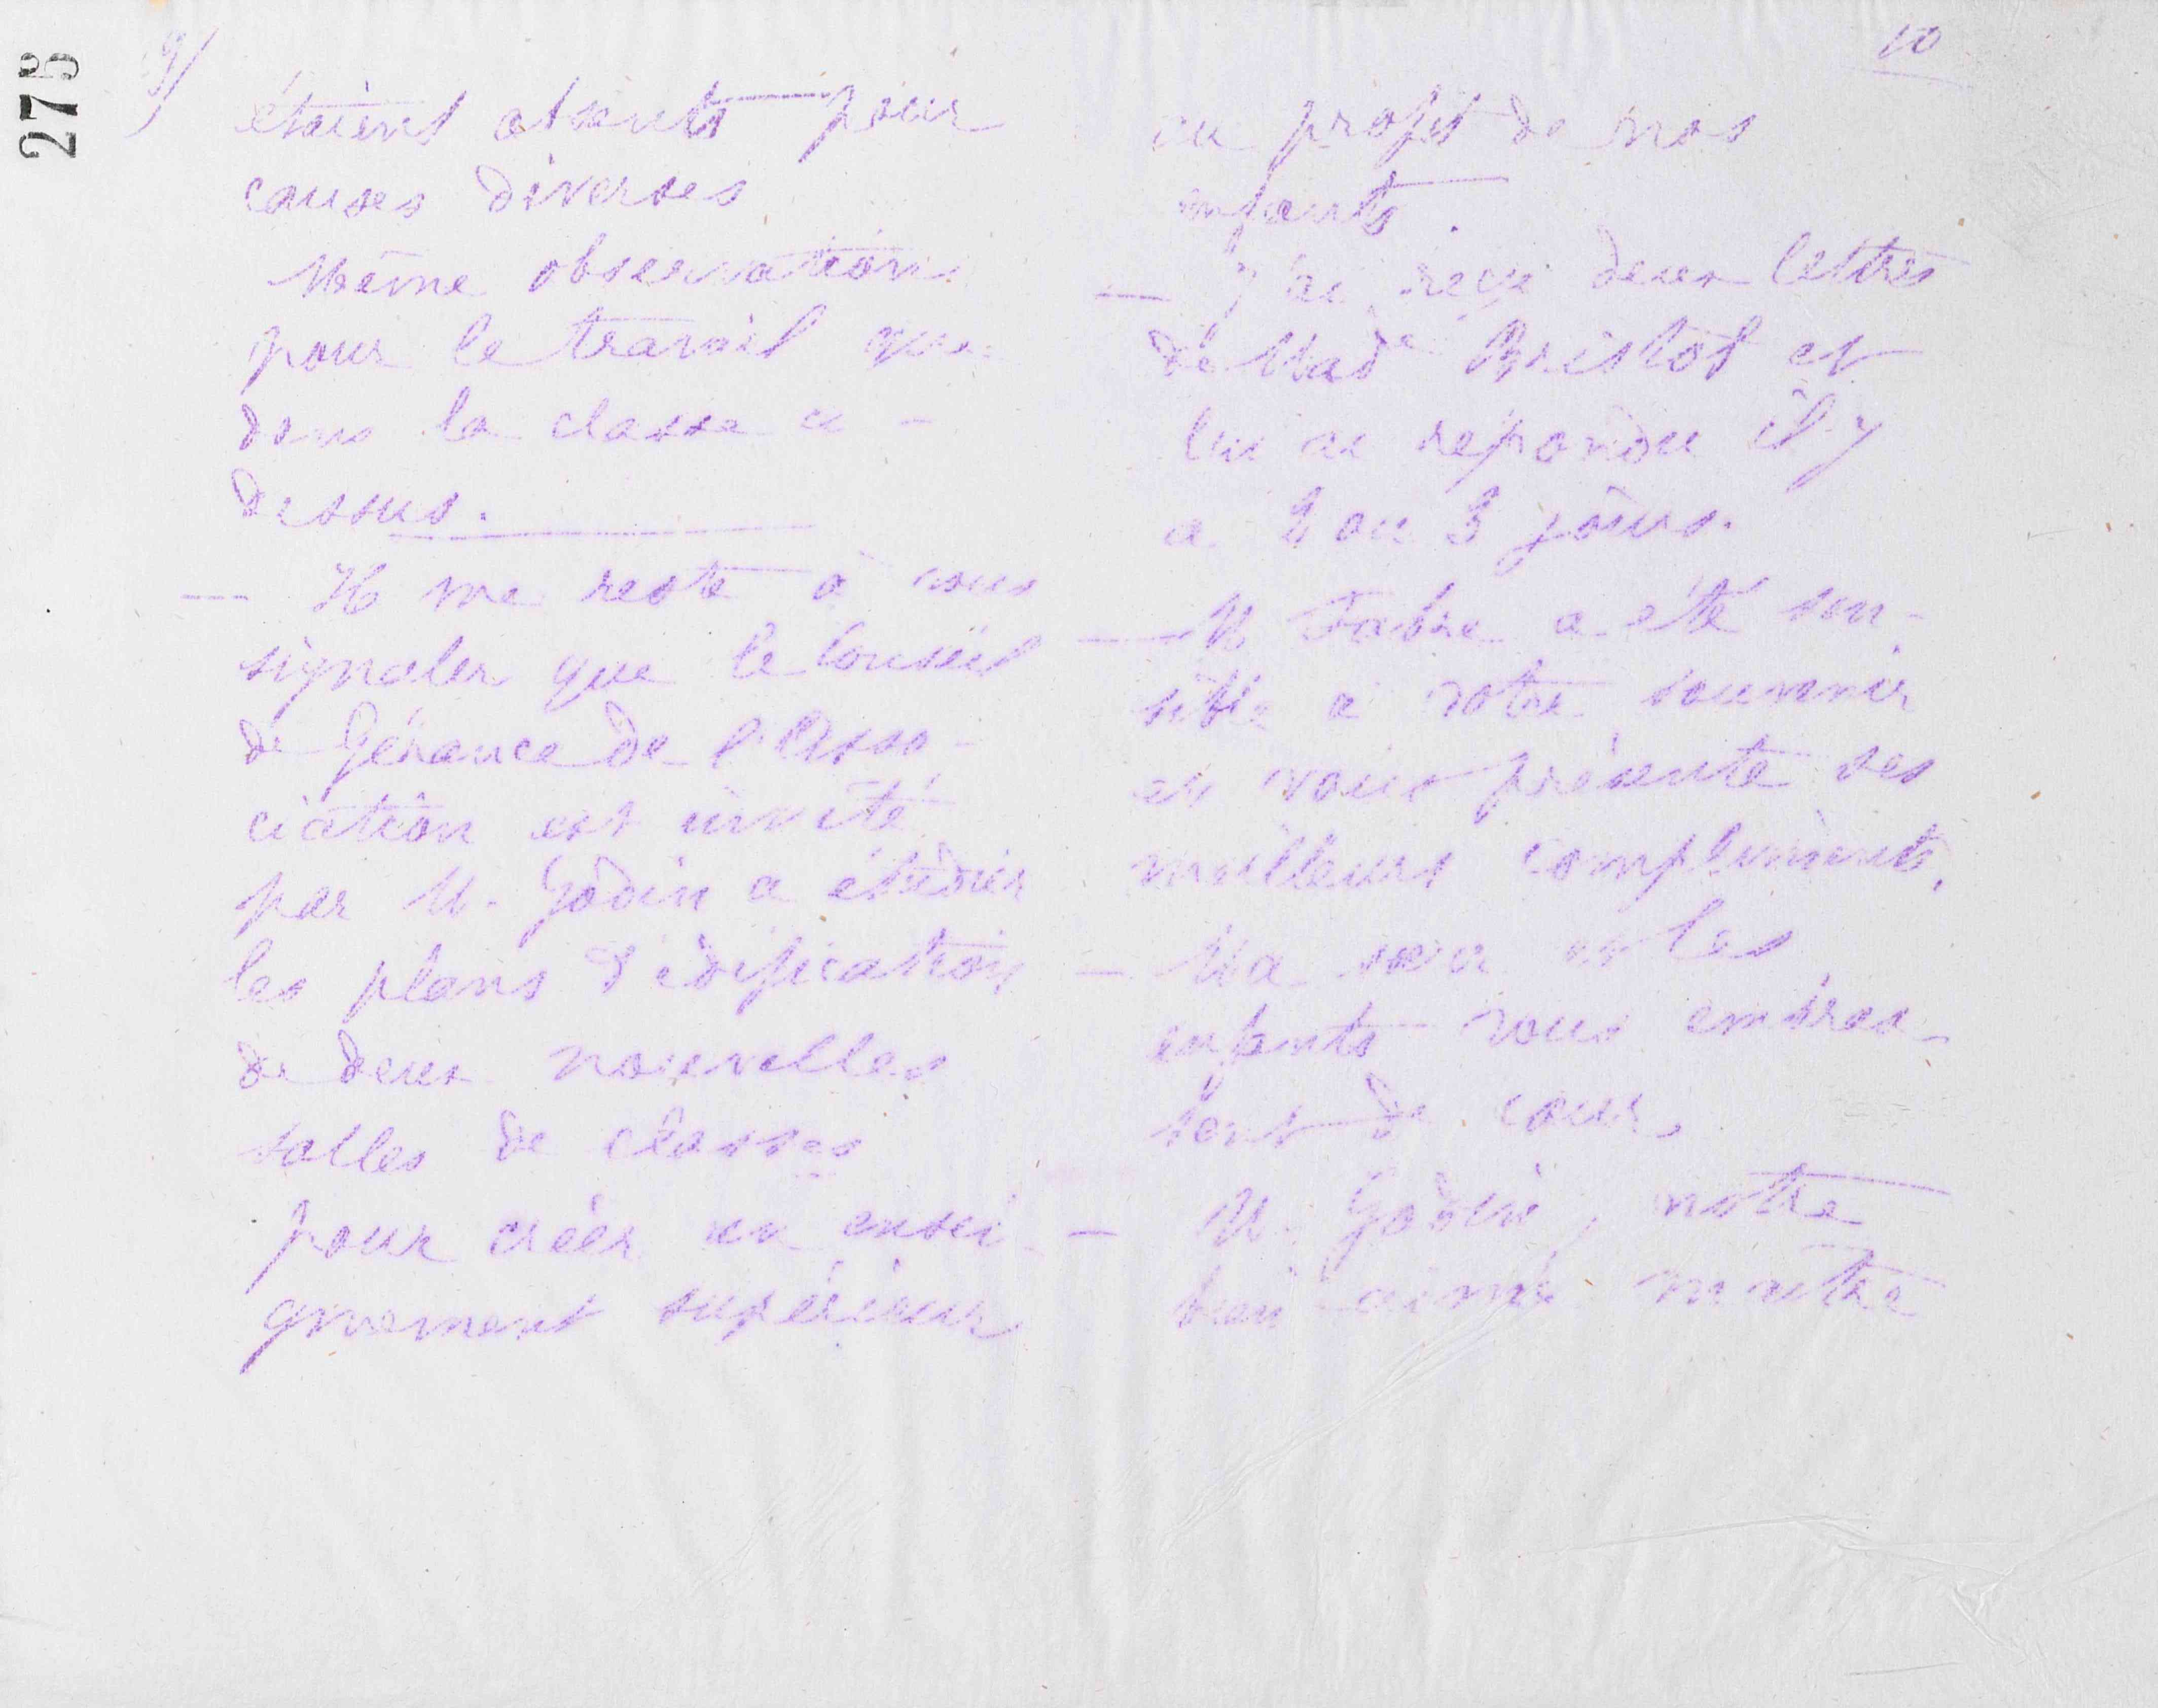 275
9/
étaient absents pour
causes diverses
Même observation
pour le travail que
dans la classe ci-
dessus.
— Il me reste à vous
signaler que le Conseil
de Gérance de l'Asso-
ciation est invité
par M. Godin a étudier
les plans d'édification
de deux nouvelles
salles de classes
pour créer un ensei-
gnement supérieur
10
au profit de nos
enfants.
— J'ai reçu deux lettres
de Made Bristol et
lui ai répondu il y
a 2 ou 3 jours.
— M Fabre a été sen-
sible à votre souvenir
et vous présente ses
meilleurs compliments.
— Ma sœur et les
enfants vous embras-
sent de cœur.
— M. Godin, notre
bien-aimé maître